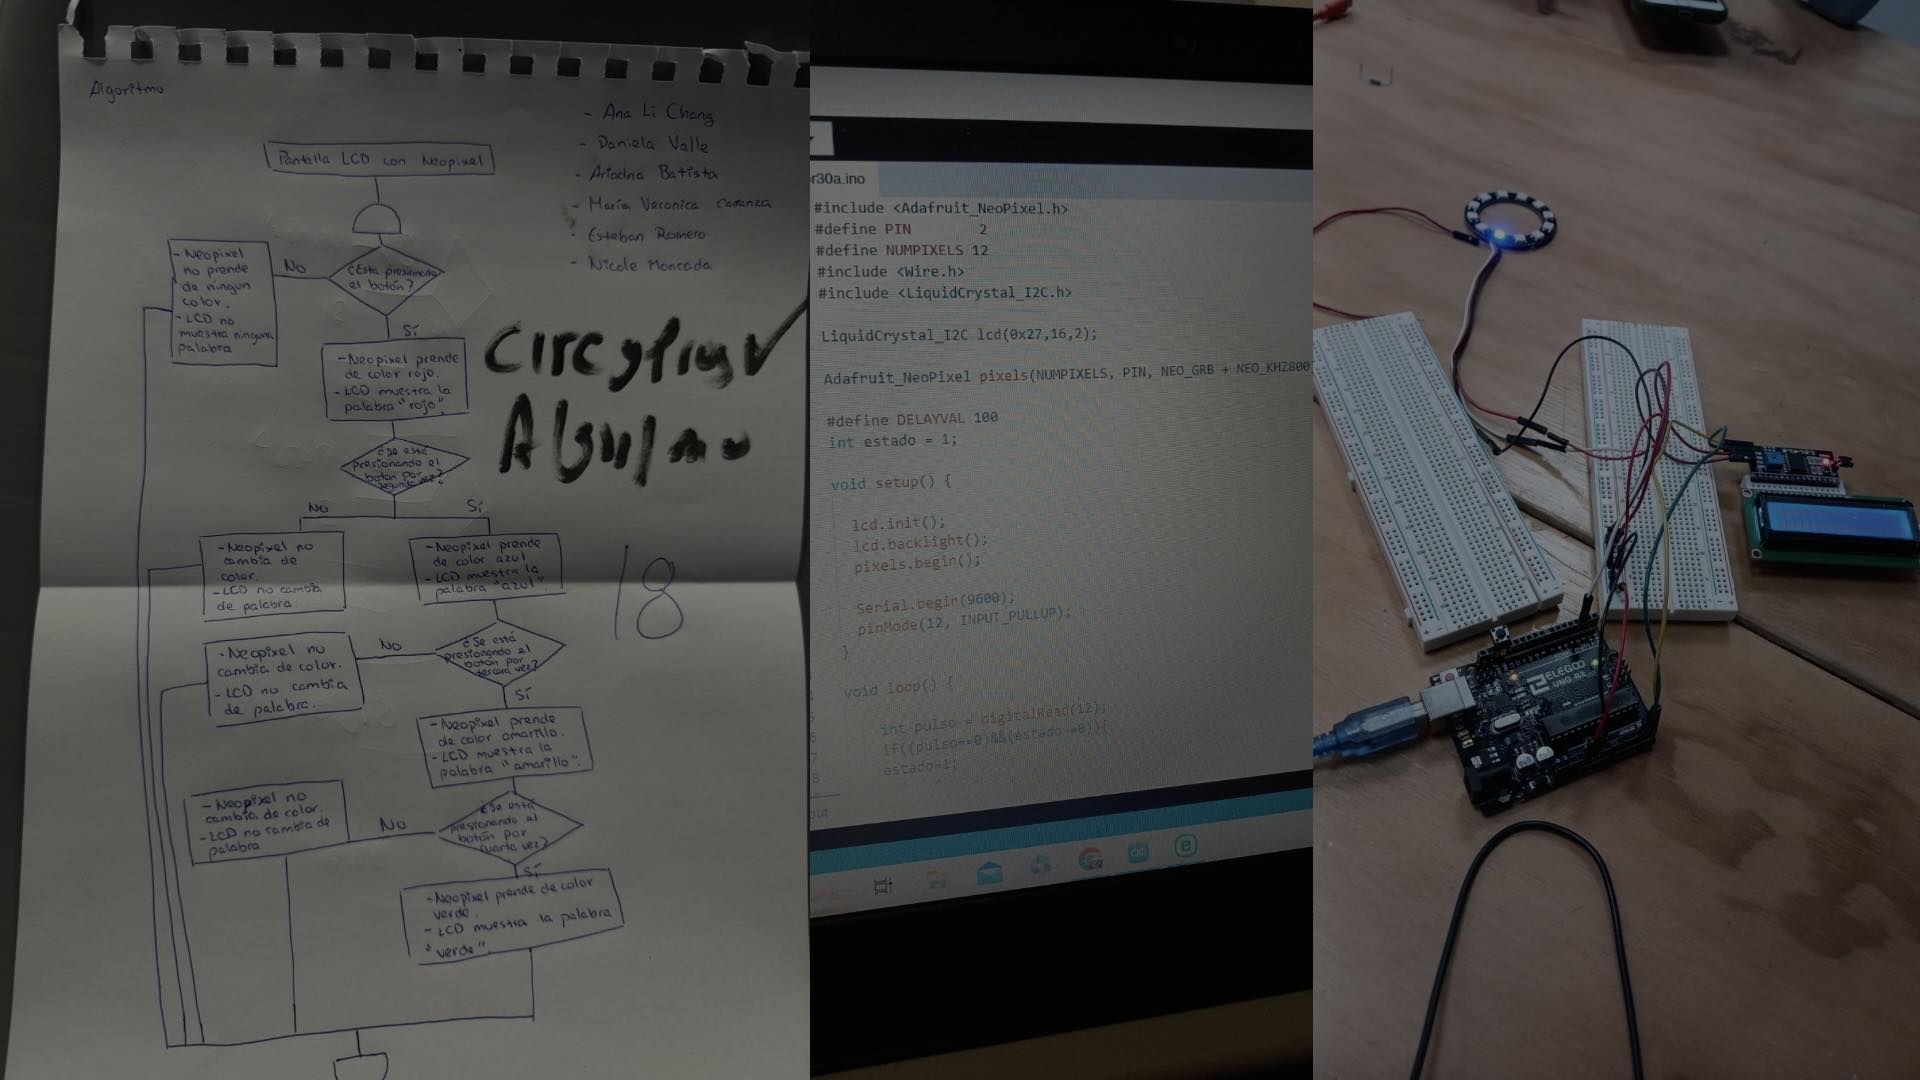 Algoritmo
- Ana Li Chang
- Daniela Valle
- Ariadna Batista
- María Veronica Carranza
- Esteban Romero
- Nicole Moncada
Pantalla LCD con Neopixel
¿Esta presionado
el botón?
No
- Neopixel
no prende
de ningun
color.
- LCD no
muestra ninguna
palabra
Sí
- Neopixel prende
de color rojo.
- LCD muestra la
palabra "rojo".
¿Se está
presionando el
botón por
segunda vez?
No
Sí
- Neopixel no
cambia de
color.
- LCD no cambia
de palabra.
- Neopixel prende
de color azul
- LCD muestra la
palabra "azul".
18
¿Se está
presionando el
botón por
tercera vez?
No
- Neopixel no
cambia de color.
- LCD no cambia
de palabra.
Sí
- Neopixel prende
de color amarillo.
- LCD muestra la
palabra "amarillo".
¿Se está
presionando el
botón por
cuarta vez?
No
- Neopixel no
cambia de color.
- LCD no cambia de
palabra
Sí
- Neopixel prende de color
verde.
- LCD muestra la palabra
"verde".
r30a.ino
#include <Adafruit_NeoPixel.h>
#define PIN 2
#define NUMPIXELS 12
#include <Wire.h>
#include <LiquidCrystal_I2C.h>
LiquidCrystal_I2C lcd(0x27,16,2);
Adafruit_NeoPixel pixels(NUMPIXELS, PIN, NEO_GRB + NEO_KHZ800
#define DELAYVAL 100
int estado = 1;
void setup() {
lcd.init();
lcd.backlight();
pixels.begin();
Serial.begin(9600);
pinMode(12, INPUT_PULLUP);
}
void loop() {
int pulso = digitalRead(12);
if((pulso==0)&&(estado==0)){
estado=1;
ELEGOO
UNO R3